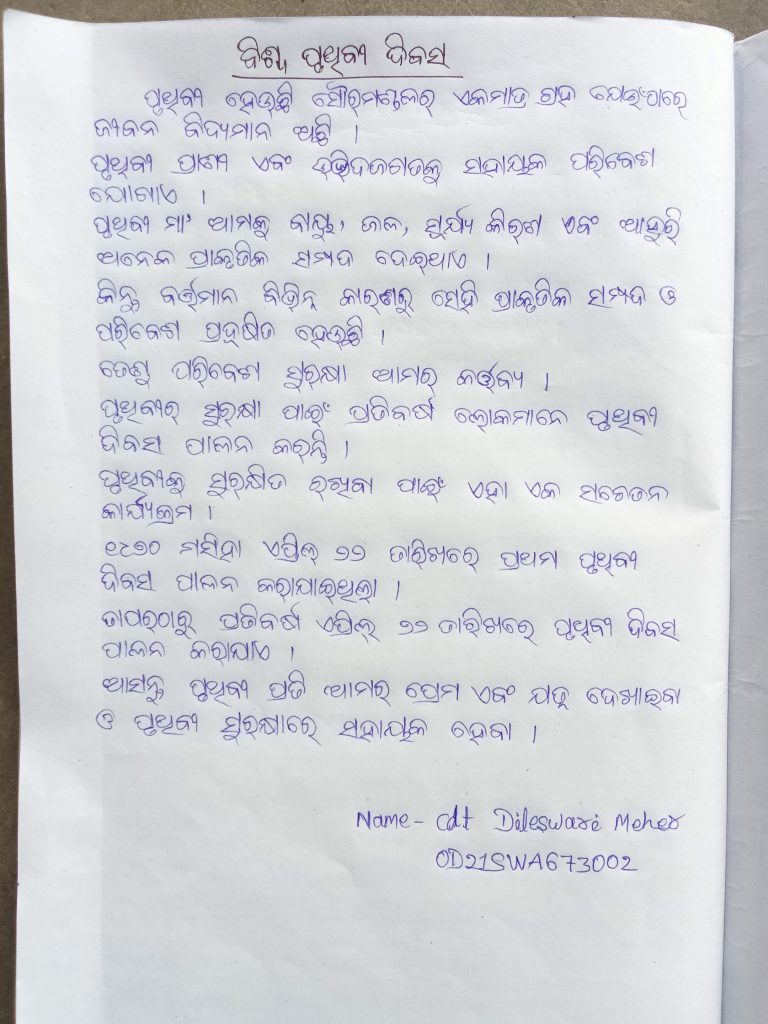 ବିଶ୍ୱ ପୃଥିବୀ ଦିବସ
ପୃଥିବୀ ହେଉଛି ସୌରମଣ୍ଡଳର ଏକମାତ୍ର ଗ୍ରହ ଯେଉଁଠାରେ
ଜୀବନ ବିଦ୍ୟମାନ ଅଛି ।
ପୃଥିବୀ ପ୍ରାଣୀ ଏବଂ ଉଦ୍ଭିଦଜଗତକୁ ସହାୟକ ପରିବେଶ
ଯୋଗାଏ ।
ପୃଥିବୀ ମା' ଆମକୁ ବାୟୁ, ଜଳ, ସୂର୍ଯ୍ୟ କିରଣ ଏବଂ ଆହୁରି
ଅନେକ ପ୍ରାକୃତିକ ସମ୍ପଦ ଦେଇଥାଏ ।
କିନ୍ତୁ ବର୍ତ୍ତମାନ ବିଭିନ୍ନ କାରଣରୁ ସେହି ପ୍ରାକୃତିକ ସମ୍ପଦ ଓ
ପରିବେଶ ପ୍ରଦୂଷିତ ହେଉଛି ।
ତେଣୁ ପରିବେଶ ସୁରକ୍ଷା ଆମର କର୍ତ୍ତବ୍ୟ ।
ପୃଥିବୀର ସୁରକ୍ଷା ପାଇଁ ପ୍ରତିବର୍ଷ ଲୋକମାନେ ପୃଥିବୀ
ଦିବସ ପାଳନ କରନ୍ତି ।
ପୃଥିବୀକୁ ସୁରକ୍ଷିତ ରଖିବା ପାଇଁ ଏହା ଏକ ସଚେତନ
କାର୍ଯ୍ୟକ୍ରମ ।
୧୯୭୦ ମସିହା ଏପ୍ରିଲ୍ ୨୨ ତାରିଖରେ ପ୍ରଥମ ପୃଥିବୀ
ଦିବସ ପାଳନ କରାଯାଇଥିଲା ।
ତାପରଠାରୁ ପ୍ରତିବର୍ଷ ଏପ୍ରିଲ୍ ୨୨ ତାରିଖରେ ପୃଥିବୀ ଦିବସ
ପାଳନ କରାଯାଏ ।
ଆସନ୍ତୁ ପୃଥିବୀ ପ୍ରତି ଆମର ପ୍ରେମ ଏବଂ ଯତ୍ନ ଦେଖାଇବା
ଓ ପୃଥିବୀ ସୁରକ୍ଷାରେ ସହାୟକ ହେବା ।
Name- Cdt Dileswari Meher
OD21SWA673002